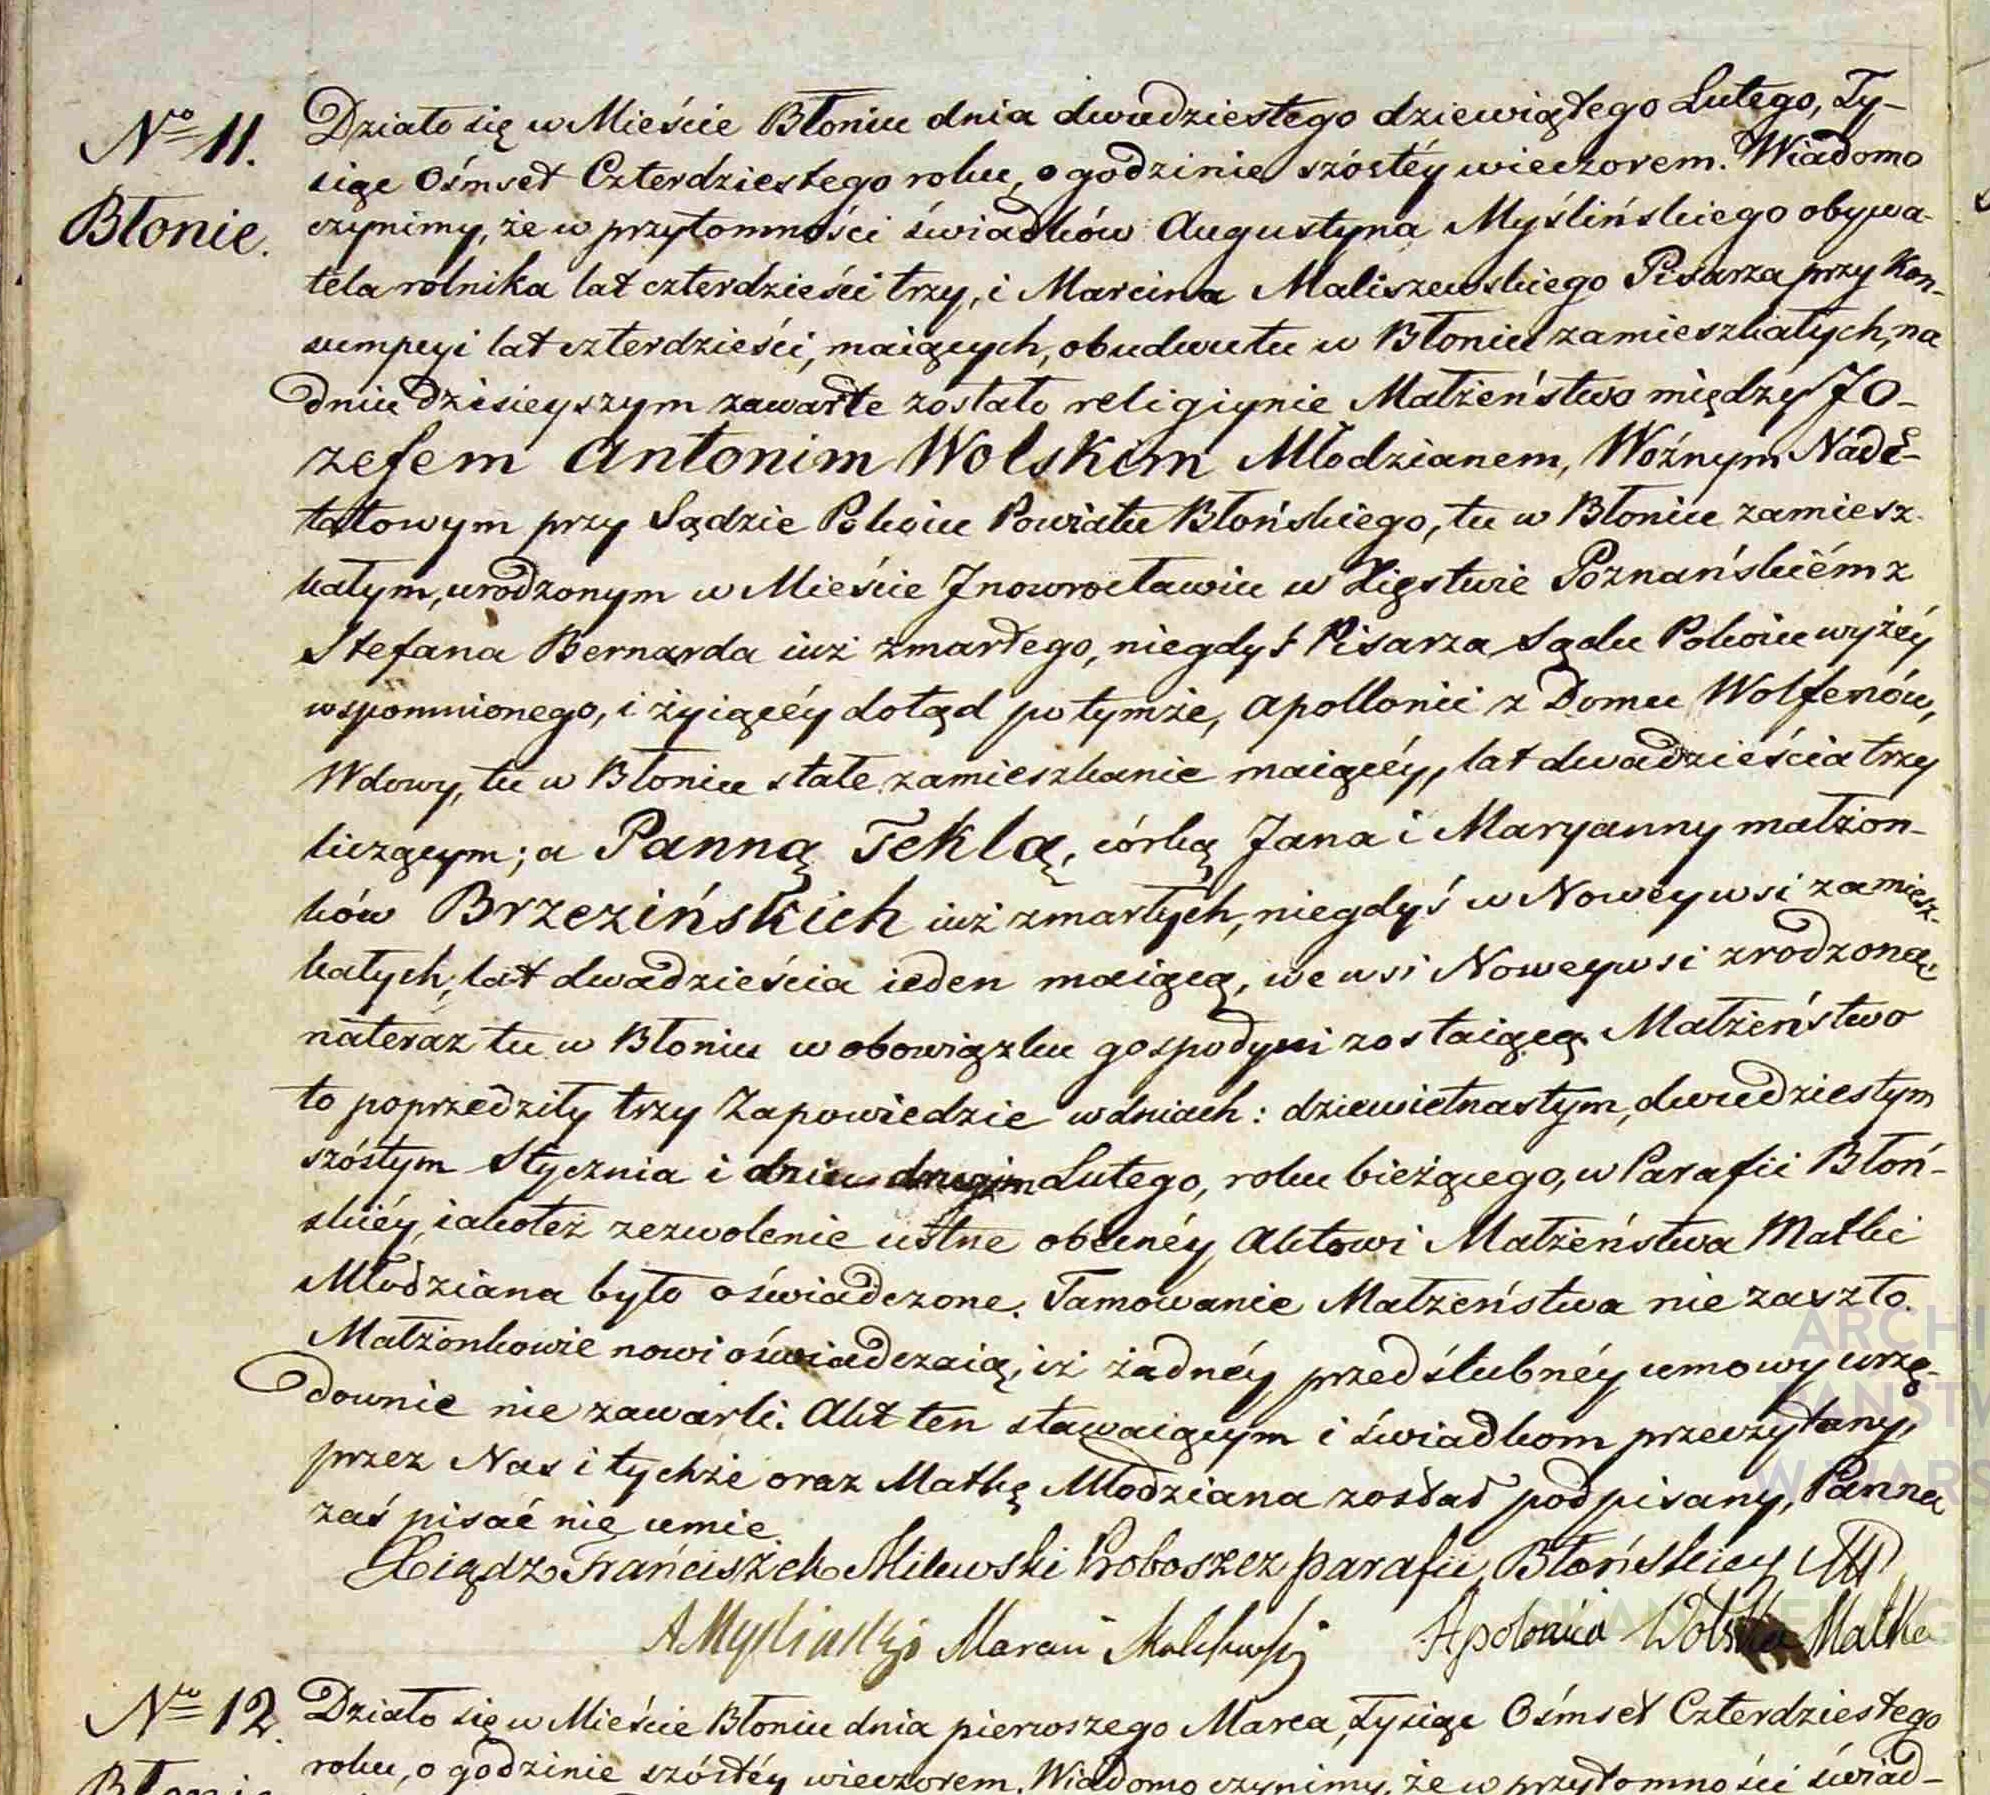 No 11.
Błonie.
Działo się w Mieście Błoniu dnia dwudziestego dziewiątego Lutego, Ty-
siąc Ośmset Czterdziestego roku, o godzinie szóstéy wieczorem. Wiadomo
czynimy, że w przytomności świadków Augustyna Myślińskiego obywa-
tela rolnika lat czterdzieści trzy, i Marcina Maliszewskiego Pisarza przy Kon-
sumpcyi lat czterdzieści, maiących, obudwu tu w Błoniu zamieszkałych, na
dniu dzisieyszym zawarte zostało religiynie Małżeństwo między JO-
zefem Antonim Wolskim Młodzianem, Woźnym Nade-
tatowym przy Sądzie Pokoiu Powiatu Błońskiego, tu w Błoniu zamiesz-
kałym, urodzonym w Mieście Jnowrocławiu w Xięstwie Poznańskiém z
Stefana Bernarda iuż zmarłego, niegdyś Pisarza Sądu Pokoiu wyżéy
wspomnionego, i żyiącéy dotąd po tymże, Apollonii z Domu Wolfenów,
Wdowy, tu w Błoniu stałe zamieszkanie maiącéy, lat dwadzieścia trzy
liczącym; a Panną Teklą, córką Jana i Maryanny małżon-
ków Brzezińskich iuż zmarłych, niegdyś w Noweywsi zamiesz-
kałych, lat dwadzieścia ieden maiącą, we wsi Noweywsi zrodzoną,
nateraz tu w Błoniu w obowiązku gospodyni zostaiącą. Małżeństwo
to poprzedziły trzy Zapowiedzie w dniach: dziewiętnastym, dwudziestym
szóstym Stycznia i dniu drugim Lutego, roku bieżącego, w Parafii Błoń-
skiéy, iakoteż zezwolenie ustne obecnéy Aktowi Małżeństwa Matki
Młodziana było oświadczone. Tamowanie Małżeństwa nie zaszło.
Małżonkowie nowi oświadczaią, iż żadnéy przedślubnéy umowy urzę-
downie nie zawarli. Akt ten stawaiącym i świadkom przeczytany,
przez Nas i tychże oraz Matkę Młodziana został podpisany, Panna
zaś pisać nie umie.
Xiądz Franciszek Milewski Proboszcz parafii Błońskiey
A Myśliński Marcin Maliszewski Apolonia Wolska Matka
No 12.
Błonie
Działo się w Mieście Błoniu dnia pierwszego Marca, Tysiąc Ośmset Czterdziestego
roku, o godzinie szóstéy wieczorem. Wiadomo czynimy, że w przytomności świad-